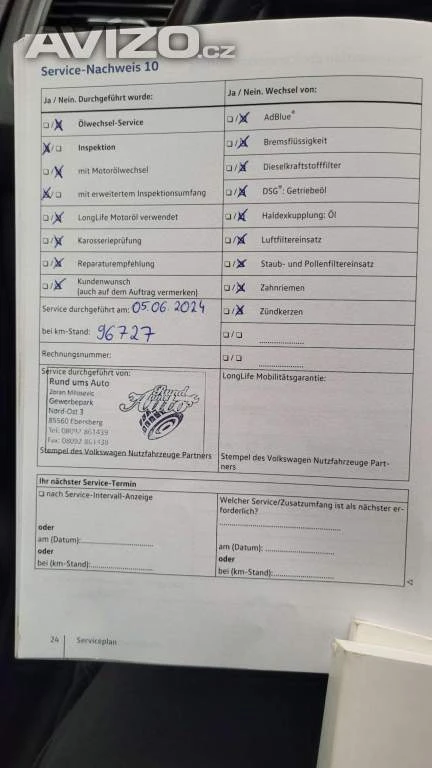 AVÍZO.cz
Service-Nachweis 10
Ja / Nein. Durchgeführt wurde:
☐/☒ Ölwechsel-Service
☒/☐ Inspektion
☐/☒ mit Motorölwechsel
☒/☐ mit erweitertem Inspektionsumfang
☐/☒ LongLife Motoröl verwendet
☐/☒ Karosserieprüfung
☐/☒ Reparaturempfehlung
☐/☒ Kundenwunsch
(auch auf dem Auftrag vermerken)
Service durchgeführt am: 05.06.2024
bei km-Stand: 96727
Rechnungsnummer:
Service durchgeführt von:
Rund ums Auto
Zoran Milosevic
Gewerbepark
Nord-Ost 3
85560 Ebersberg
Tel: 08092 861439
Fax: 08092 861438
Rund
Stempel des Volkswagen Nutzfahrzeuge Partners
Ja / Nein. Wechsel von:
☐/☒ AdBlue®
☐/☒ Bremsflüssigkeit
☐/☒ Dieselkraftstofffilter
☐/☒ DSG®: Getriebeöl
☐/☒ Haldexkupplung: Öl
☐/☒ Luftfiltereinsatz
☐/☒ Staub- und Pollenfiltereinsatz
☐/☒ Zahnriemen
☐/☒ Zündkerzen
☐/☐ ....................
☐/☐ ....................
LongLife Mobilitätsgarantie:
Stempel des Volkswagen Nutzfahrzeuge Part-
ners
Ihr nächster Service-Termin
☐ nach Service-Intervall-Anzeige
oder
am (Datum):........................
oder
bei (km-Stand):........................
Welcher Service/Zusatzumfang ist als nächster er-
forderlich?
........................................
am (Datum): ........................
oder
bei (km-Stand):........................
24 Serviceplan